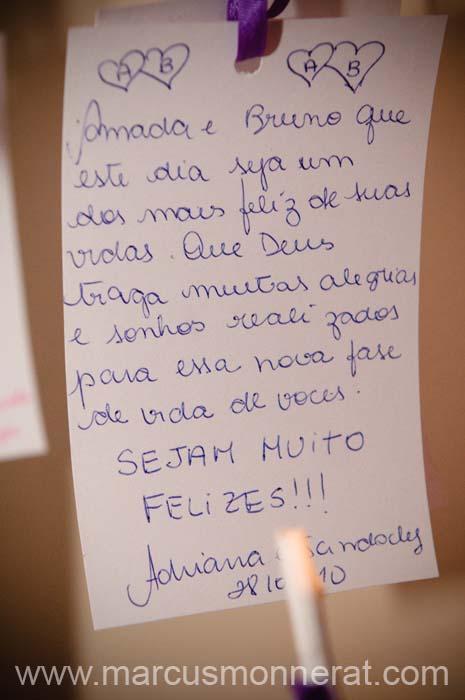 A B A B
Amada e Bruno que
este dia seja um
dos mais feliz de suas
vidas. Que Deus
traga muitas alegrias
e sonhos realizados
para essa nova fase
de vida de voces.
SEJAM MUITO
FELIZES!!!
Adriana
www.marcusmonnerat.com